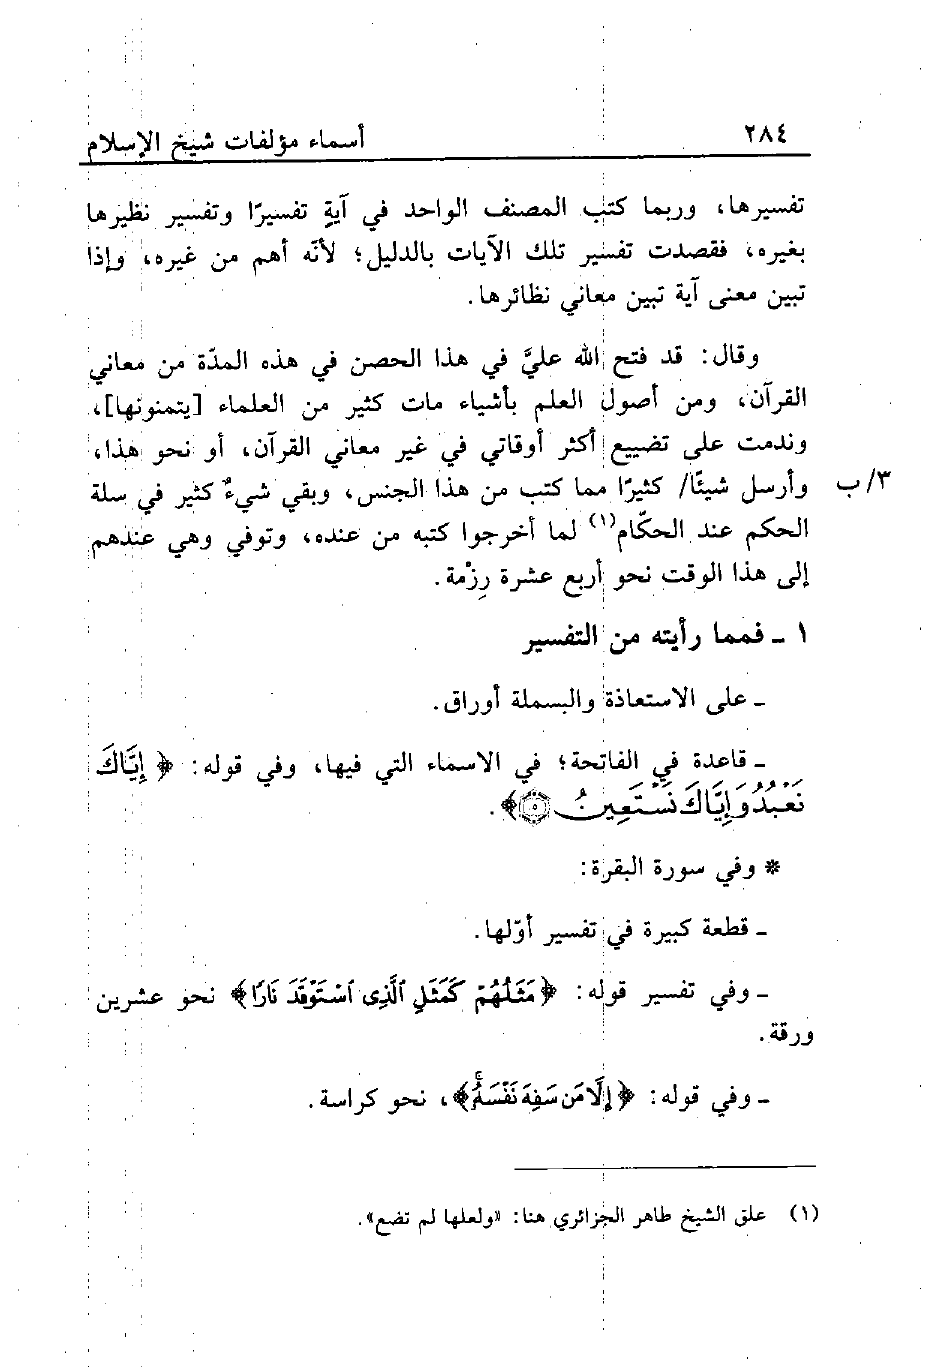 ٢٨٤ أسماء مؤلفات شيخ الإسلام
تفسيرها، وربما كتب المصنف الواحد في آيةٍ تفسيرًا وتفسير نظيرها
بغيره، فقصدت تفسير تلك الآيات بالدليل؛ لأنّه أهم من غيره، وإذا
تبين معنى آية تبين معاني نظائرها.
وقال: قد فتح الله عليَّ في هذا الحصن في هذه المدّة من معاني
القرآن، ومن أصول العلم بأشياء مات كثير من العلماء [يتمنونها]،
وندمت على تضييع أكثر أوقاتي في غير معاني القرآن، أو نحو هذا،
٣/ب وأرسل شيئًا/ كثيرًا مما كتب من هذا الجنس، وبقي شيءٌ كثير في سلة
الحكم عند الحكّام(١) لما أخرجوا كتبه من عنده، وتوفي وهي عندهم
إلى هذا الوقت نحو أربع عشرة رِزْمة.
١ ـ فمما رأيته من التفسير
ـ على الاستعاذة والبسملة أوراق.
ـ قاعدة في الفاتحة؛ في الاسماء التي فيها، وفي قوله: ﴿إِيَّاكَ
نَعْبُدُ وَإِيَّاكَ نَسْتَعِينُ ۝٥﴾.
* وفي سورة البقرة:
ـ قطعة كبيرة في تفسير أوّلها.
ـ وفي تفسير قوله: ﴿مَثَلُهُمْ كَمَثَلِ ٱلَّذِى ٱسْتَوْقَدَ نَارًا﴾ نحو عشرين
ورقة.
ـ وفي قوله: ﴿إِلَّا مَن سَفِهَ نَفْسَهُۥۚ﴾، نحو كراسة.
(١) علق الشيخ طاهر الجزائري هنا: «ولعلها لم تضع».